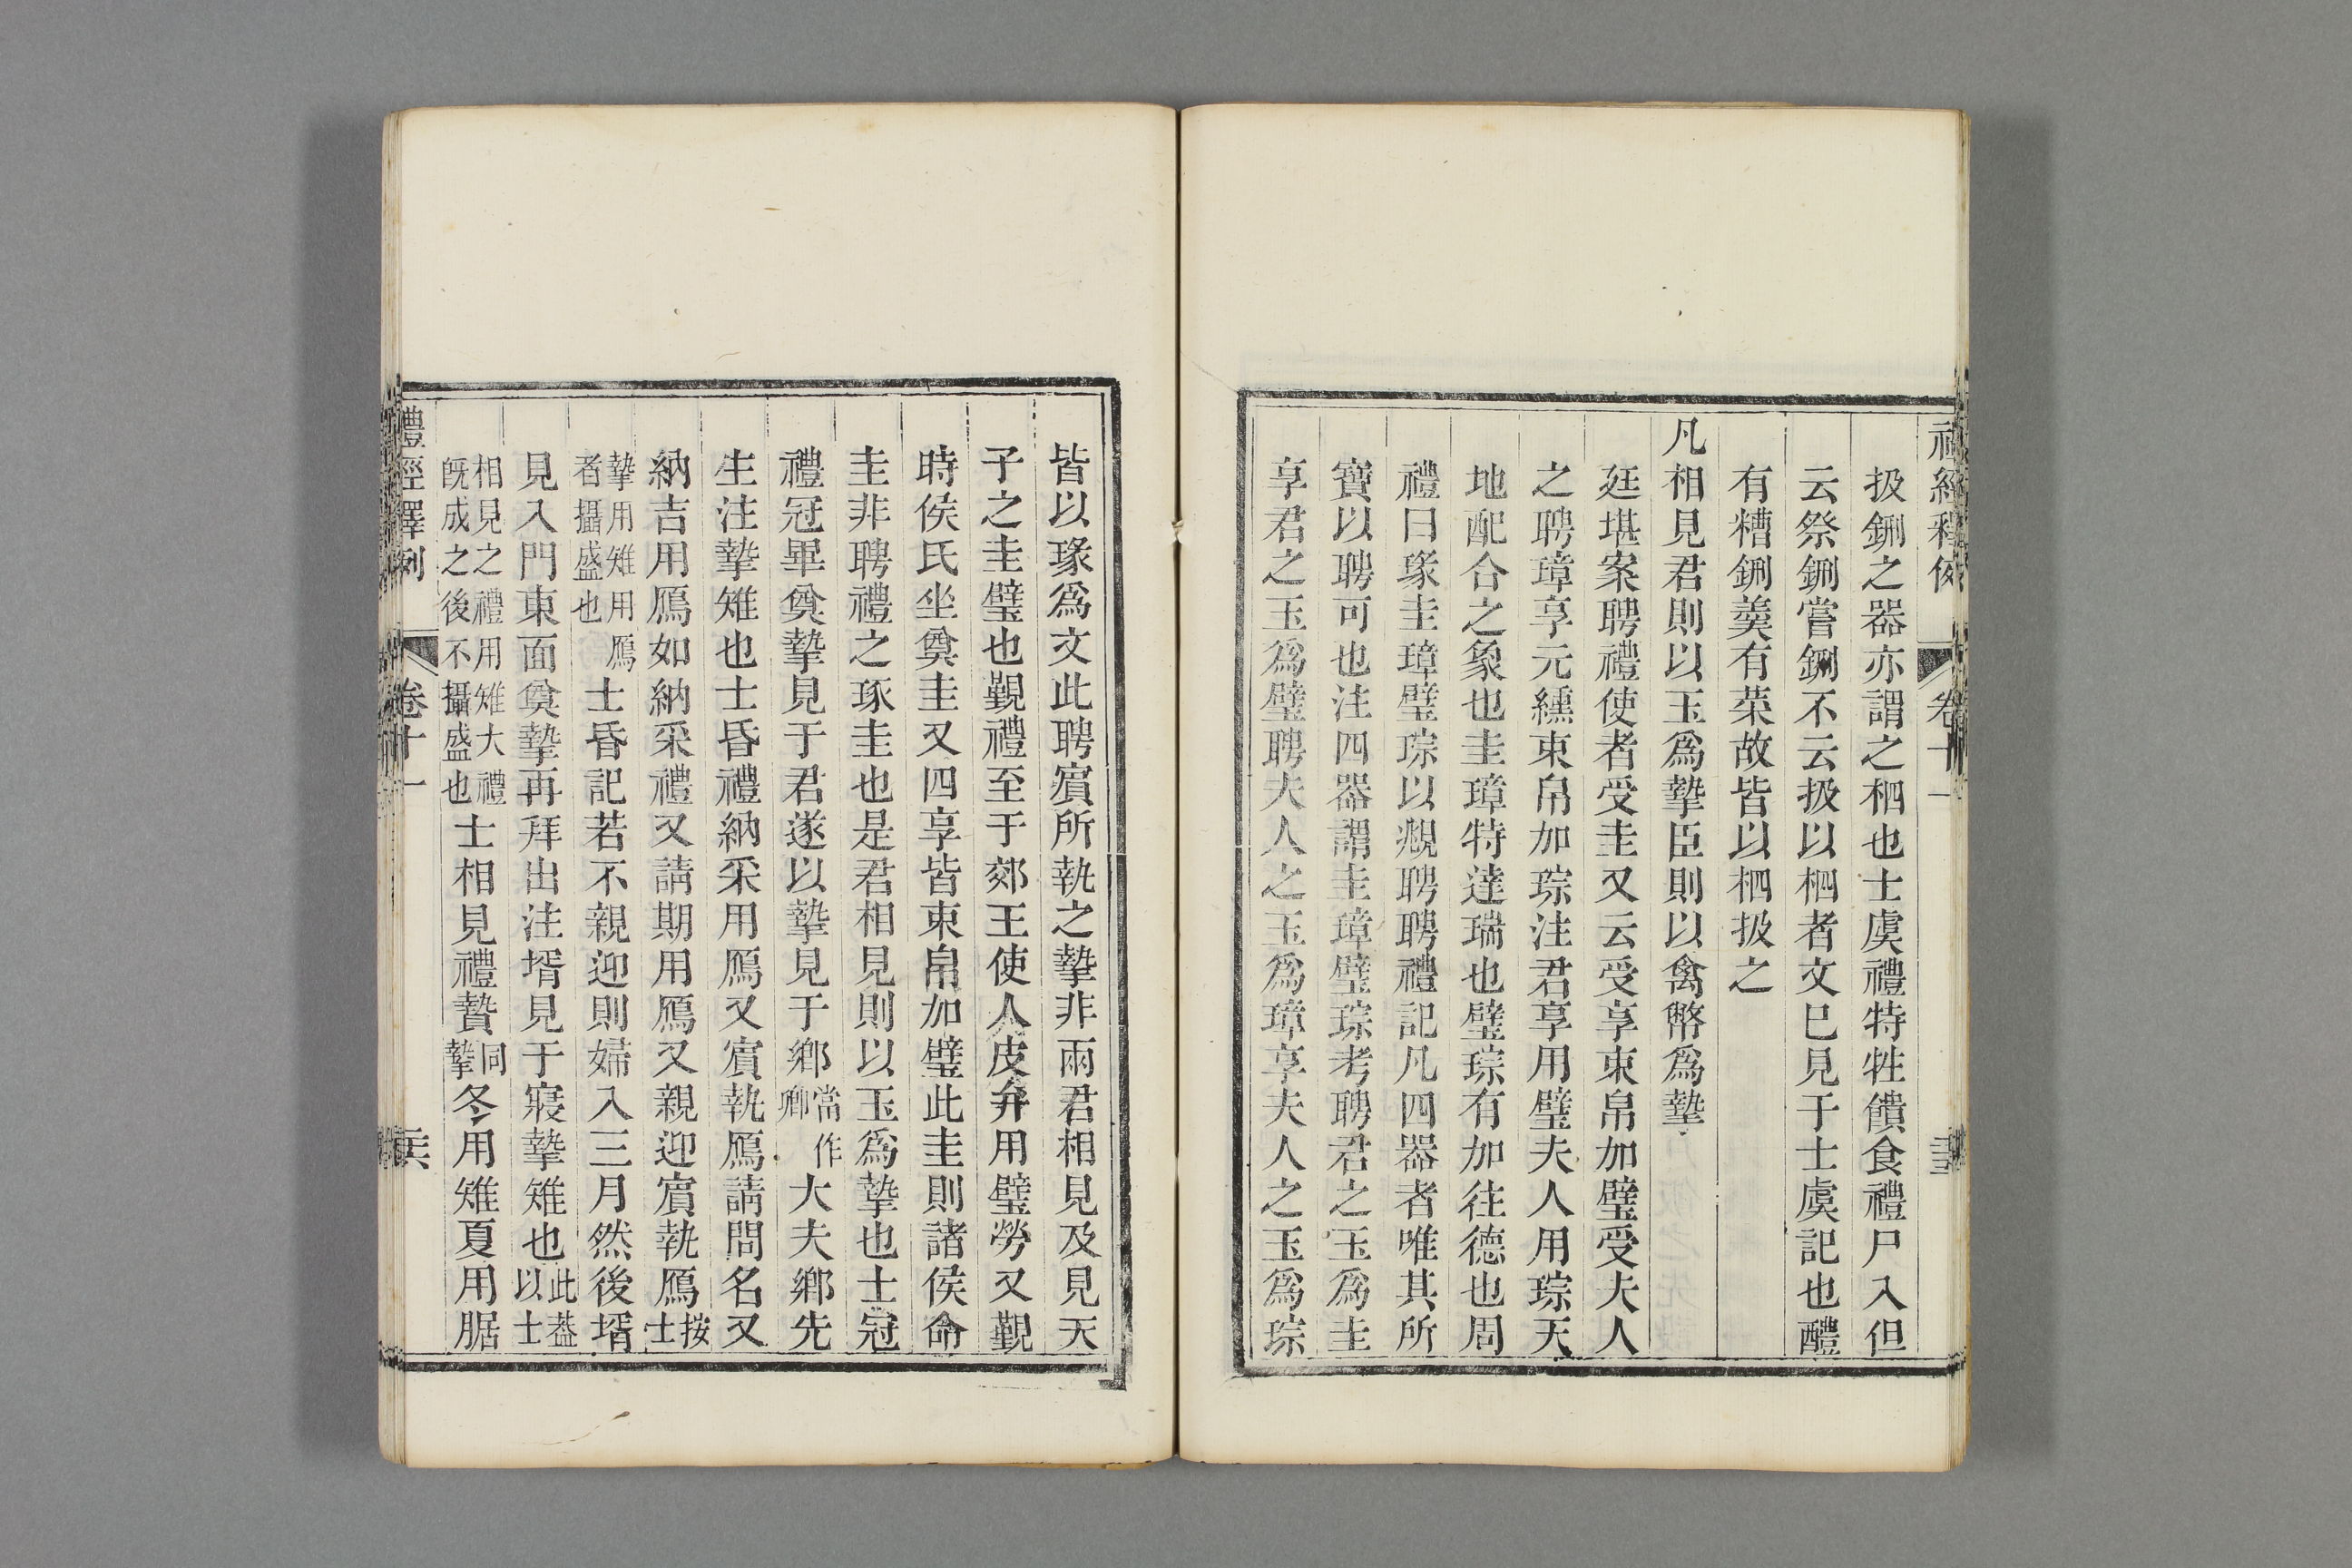 扱鉶之器亦謂之柶也士虞禮特牲饋食禮尸入但
云祭鉶嘗鉶不云扱以柶者文已見于士虞記也醴
有糟鉶羹有菜故皆以柶扱之
凡相見君則以玉爲摯臣則以禽幣爲摯
廷堪案聘禮使者受圭又云受享束帛加璧受夫人
之聘璋享元纁束帛加琮注君享用璧夫人用琮天
地配合之象也圭璋特達瑞也璧琮有加往德也周
禮曰瑑圭璋璧琮以頫聘聘禮記凡四器者唯其所
寶以聘可也注四器謂圭璋璧琮考聘君之玉爲圭
享君之玉爲璧聘夫人之玉爲璋享夫人之玉爲琮
皆以瑑爲文此聘賓所執之摯非兩君相見及見天
子之圭璧也覲禮至于郊王使人皮弁用璧勞又覲
時侯氏坐奠圭又四享皆束帛加璧此圭則諸侯命
圭非聘禮之琢圭也是君相見則以玉爲摯也士冠
禮冠畢奠摯見于君遂以摯見于鄉當作卿大夫鄉先
生注摯雉也士昏禮納采用鴈又賓執鴈請問名又
納吉用鴈如納采禮又請期用鴈又親迎賓執鴈按士
摯用雉用鴈者攝盛也士昏記若不親迎則婦入三月然後壻
見入門東面奠摯再拜出注壻見于寢摯雉也此葢以士
相見之禮用雉大禮既成之後不攝盛也士相見禮贄同摯冬用雉夏用腒
禮經釋例 卷十一